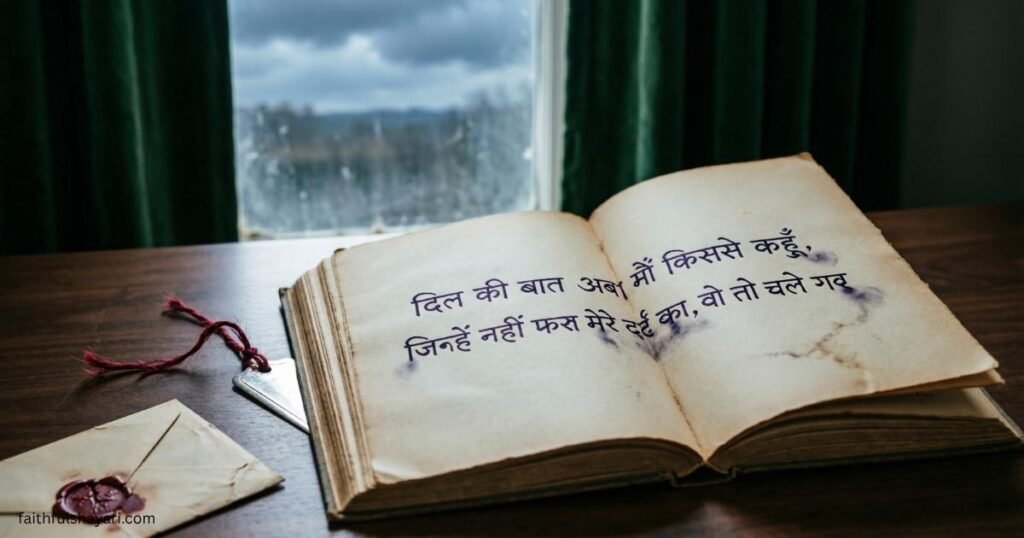 दिल की बात अब मौं किससे कहूँ,
जिनहें नहीं फस मेरे दर्द का, वो तो चले गव
faithfulshayari.com